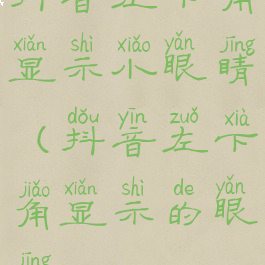 抖音左下角
xiǎn shì xiǎo yǎn jīng
显示小眼睛
dǒu yīn zuǒ xià
(抖音左下
jiǎo xiǎn shì de yǎn
角显示的眼
jīng